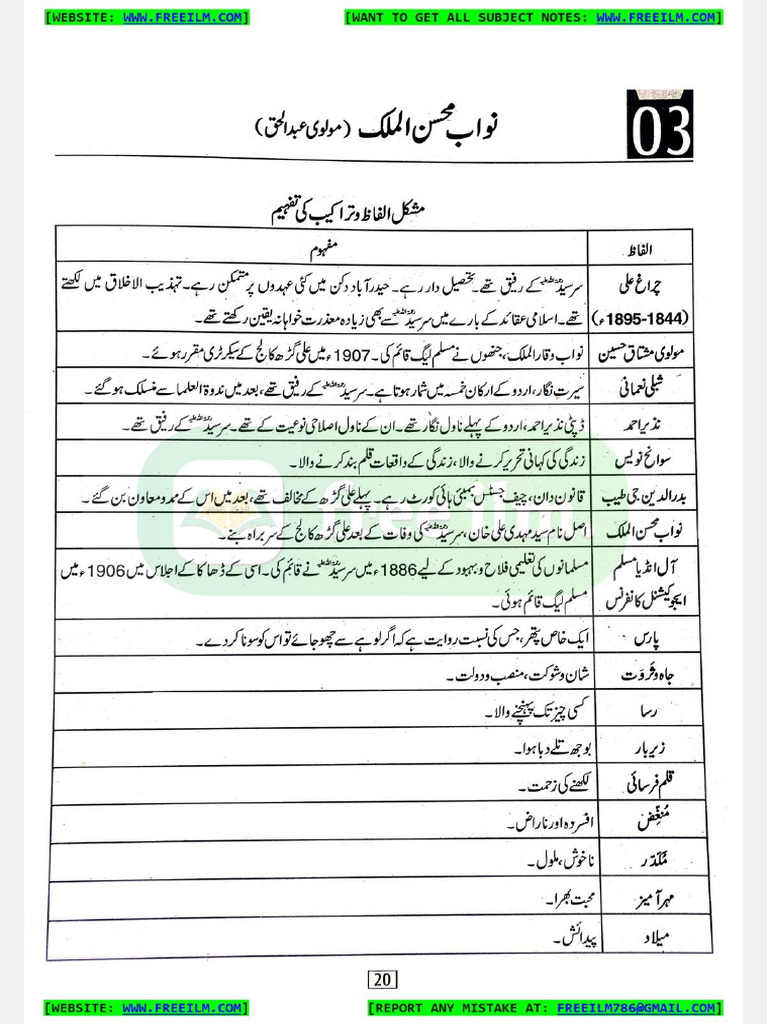 [WEBSITE: WWW.FREEILM.COM] [WANT TO GET ALL SUBJECT NOTES: WWW.FREEILM.COM]
03
نواب محسن الملک (مولوی عبدالحق)
مشکل الفاظ و تراکیب کی تفہیم
الفاظ مفہوم
چراغ علی سرسیدؒ کے رفیق تھے۔ تحصیل دار رہے۔ حیدرآباد دکن میں کئی عہدوں پر متمکن رہے۔ تہذیب الاخلاق میں لکھتے
(1844-1895ء) تھے۔ اسلامی عقائد کے بارے میں سرسیدؒ سے بھی زیادہ معذرت خواہانہ یقین رکھتے تھے۔
مولوی مشتاق حسین نواب وقار الملک، جنھوں نے مسلم لیگ قائم کی۔ 1907ء میں علی گڑھ کالج کے سیکرٹری مقرر ہوئے۔
شبلی نعمانی سیرت نگار، اردو کے ارکان خمسہ میں شمار ہوتا ہے۔ سرسیدؒ کے رفیق تھے، بعد میں ندوۃ العلما سے منسلک ہو گئے۔
نذیر احمد ڈپٹی نذیر احمد، اردو کے پہلے ناول نگار تھے۔ ان کے ناول اصلاحی نوعیت کے تھے۔ سرسیدؒ کے رفیق تھے۔
سوانح نویس زندگی کی کہانی تحریر کرنے والا، زندگی کے واقعات قلم بند کرنے والا۔
بدرالدین جی طیب قانون دان، چیف جسٹس بمبئی ہائی کورٹ رہے۔ پہلے علی گڑھ کے مخالف تھے، بعد میں اس کے ممد و معاون بن گئے۔
نواب محسن الملک اصل نام سید مہدی علی خان، سرسیدؒ کی وفات کے بعد علی گڑھ کالج کے سربراہ بنے۔
آل انڈیا مسلم مسلمانوں کی تعلیمی فلاح و بہبود کے لیے 1886ء میں سرسیدؒ نے قائم کی۔ اسی کے ڈھاکا کے اجلاس میں 1906ء میں
ایجوکیشنل کانفرنس مسلم لیگ قائم ہوئی۔
پارس ایک خاص پتھر، جس کی نسبت روایت ہے کہ اگر لوہے سے چھو جائے تو اس کو سونا کر دے۔
جاہ و ثروت شان و شوکت، منصب و دولت۔
رسا کسی چیز تک پہنچنے والا۔
زیر بار بوجھ تلے دبا ہوا۔
قلم فرسائی لکھنے کی زحمت۔
مُنغِّض افسردہ اور ناراض۔
مُکدّر ناخوش، ملول۔
مہر آمیز محبت بھرا۔
میلاد پیدائش۔
freeilm
20
[WEBSITE: WWW.FREEILM.COM] [REPORT ANY MISTAKE AT: FREEILM786@GMAIL.COM]